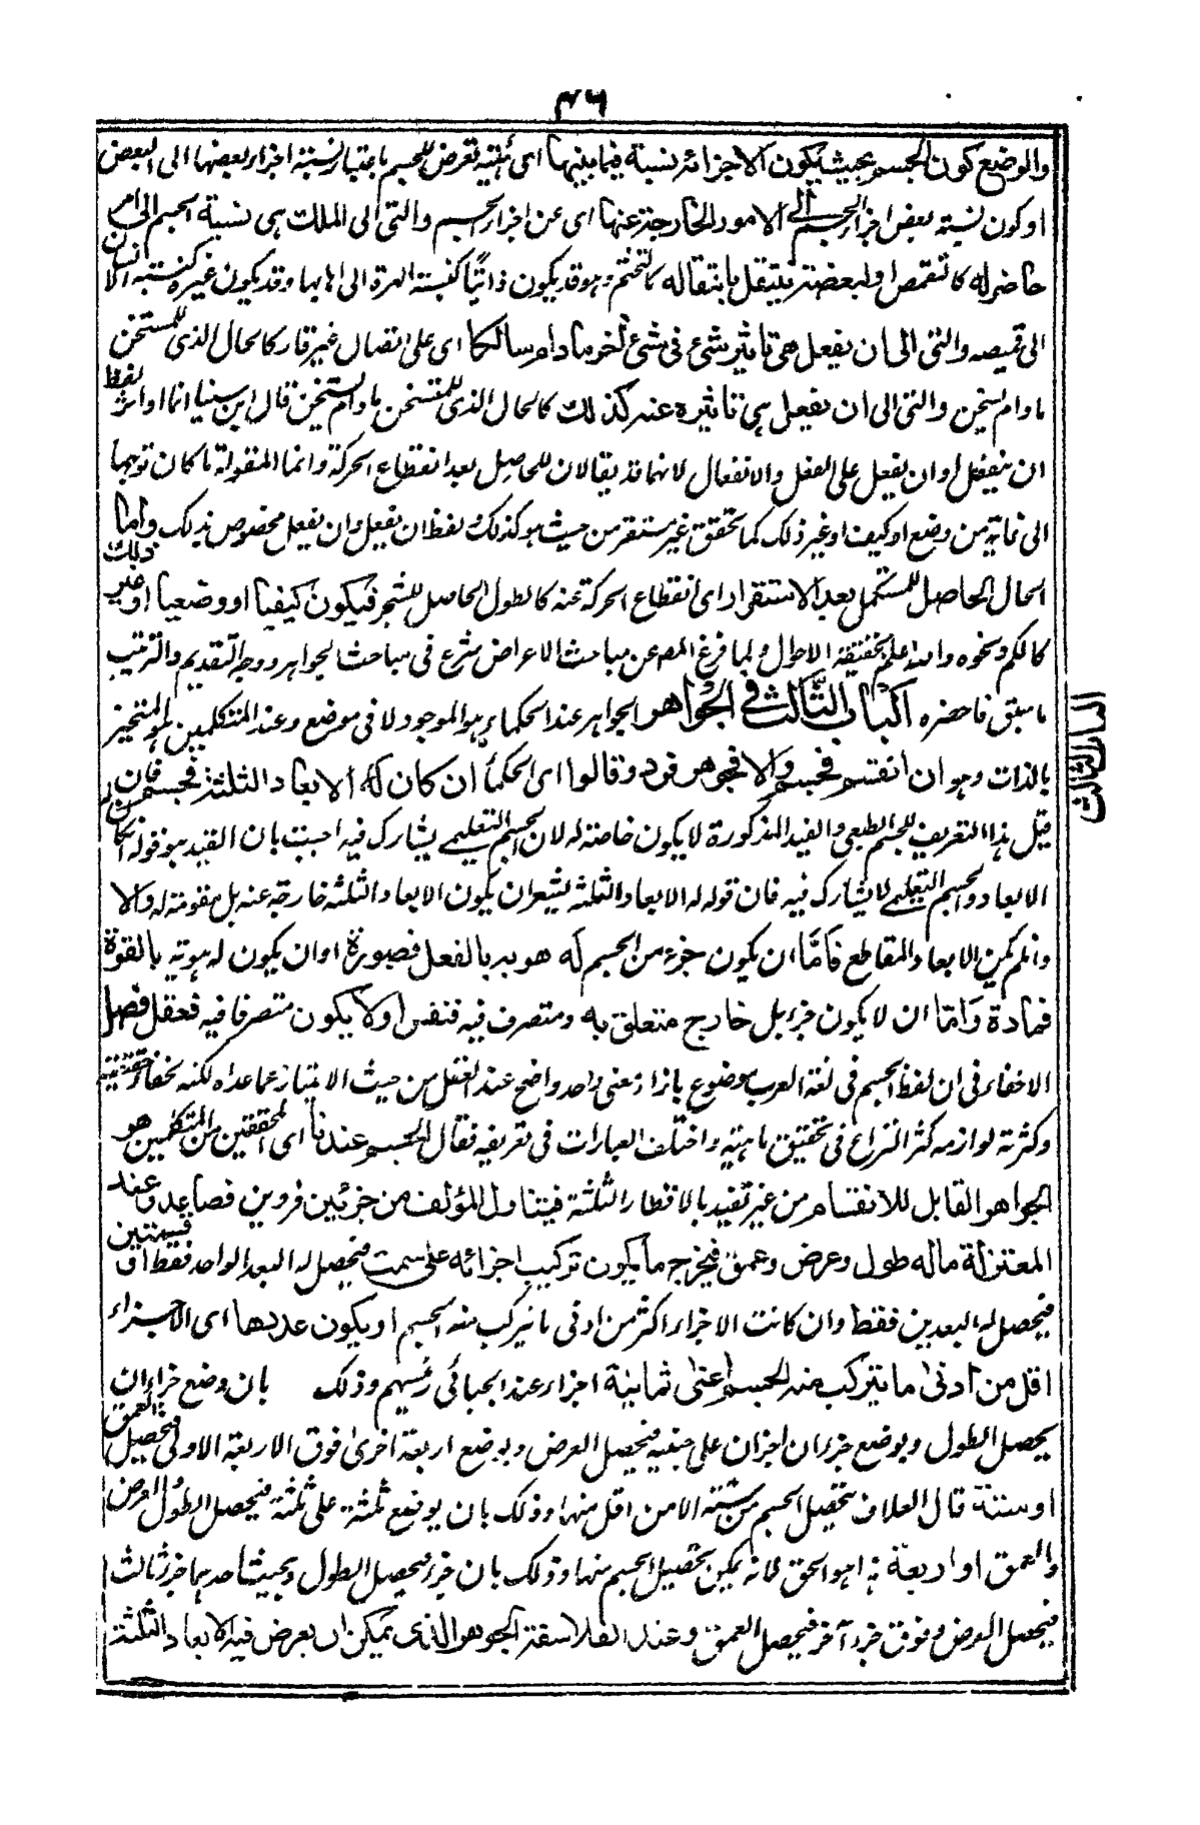 ٤٦
والوضع كون الجسم بحيث يكون لاجزائه نسبة فيما بينها اى هيئة تعرض للجسم باعتبار نسبة اجزاء بعضها الى البعض
او كون نسبة بعض اجزاء الجسم الى الامور الخارجة عنها اى عن اجزاء الجسم والتى الى الملك هى نسبة الجسم الى امر
حاضر له كالتقمص او لبعضه ينتقل بانتقاله كالتختم وهو قد يكون ذاتيا كنسبة الهرة الى اهابها وقد يكون غيره كنسبة الانسان
الى قميصه والتى الى ان يفعل هى تاثير شئ فى شئ آخر ما دام سالكا اى على اتصال غير قار كالحال الذى للمسخن
ما دام يسخن والتى الى ان ينفعل هى تاثره عنه كذلك كالحال الذى للمتسخن ما دام يتسخن قال ابن سينا انما اوثر لفظ
ان ينفعل او ان يفعل على الفعل والانفعال لانهما قد يقالان للحاصل بعد انقطاع الحركة وانما المقولة ما كان توجها
الى غاية من وضع او كيف او غير ذلك كما تحقق غير مستقر من حيث هو كذلك ولفظ ان يفعل وان ينفعل مخصوص بذلك واما
الحال الحاصل للمستكمل بعد الاستقرار اى انقطاع الحركة عنه كالطول الحاصل للشجر فيكون كيفيا او وضعيا او غير ذلك
كالكم ونحوه والله اعلم بحقيقة الاحوال ولما فرغ المصنف عن مباحث الاعراض شرع فى مباحث الجواهر ووجه التقديم والترتيب
ما سبق فاحضره الباب الثالث فى الجواهر الجواهر عند الحكماء هو الموجود لا فى موضع وعند المتكلمين هو المتحيز
بالذات وهو ان انقسم فجسم والا فجوهر فرد وقالوا اى الحكماء ان كان له الابعاد الثلثة فجسم فان
قيل هذا التعريف للجسم الطبعى والقيد المذكورة لا يكون خاصة له لان الجسم التعليمى يشارك فيه اجيبت بان القيد هو قوله
الابعاد والجسم التعليمى لا يشارك فيه فان قوله له الابعاد الثلثة يشعر ان يكون الابعاد الثلثة خارجة عنه بل مقومة له والا
وان لم يكن الابعاد المقاطع فاما ان يكون جزء من الجسم له هو به بالفعل فصورة او ان يكون له هوية بالقوة
فمادة واما ان لا يكون جزء بل خارج متعلق به ومتصرف فيه فنفس او لا يكون متصرفا فيه فعقل فصل
لا خفاء فى ان لفظ الجسم فى لغة العرب موضوع بازاء معنى واحد واضح عند العقل من حيث الامتياز عما عداه لكنه لخفاء حقيقته
وكثرة لوازمه كثر النزاع فى تحقيق ماهيته واختلف العبارات فى تعريفه فقال الجسم عندنا اى المحققين من المتكلمين هو
الجواهر القابل للانقسام من غير تقييد بالاقطار الثلثة فيتناول المؤلف من جزئين فردين فصاعدا وعند
المعتزلة ماله طول وعرض وعمق فيخرج ما يكون تركيب اجزائه على سمت فيحصل له البعد الواحد فقط او سمتين
فيحصل له البعدين فقط وان كانت الاجزاء اكثر من ادنى ما يتركب منه الجسم او يكون عددها اى الاجزاء
اقل من ادنى ما يتركب منه الجسم اعنى ثمانية اجزاء عند الجبائى رئيسهم وذلك بان وضع جزءان
يحصل الطول وبوضع جزءان اخران على جنبيه فيحصل العرض وبوضع اربعة اخرى فوق الاربعة الاولى فيحصل العمق
او ستة قال العلاف يتحصل الجسم من ستة الا من اقل منها وذلك بان يوضع ثلثة على ثلثة فيحصل الطول والعرض
والعمق او اربعة هذا هو الحق لانه يمكن تحصيل الجسم منها وذلك بان جزء فيحصل الطول وبجنب احدهما جزء ثالث
فيحصل العرض وفوق جزء آخر فيحصل العمق وعند الفلاسفة الجوهر الذى يمكن ان يعرض فيه الابعاد الثلثة
الباب الثالث